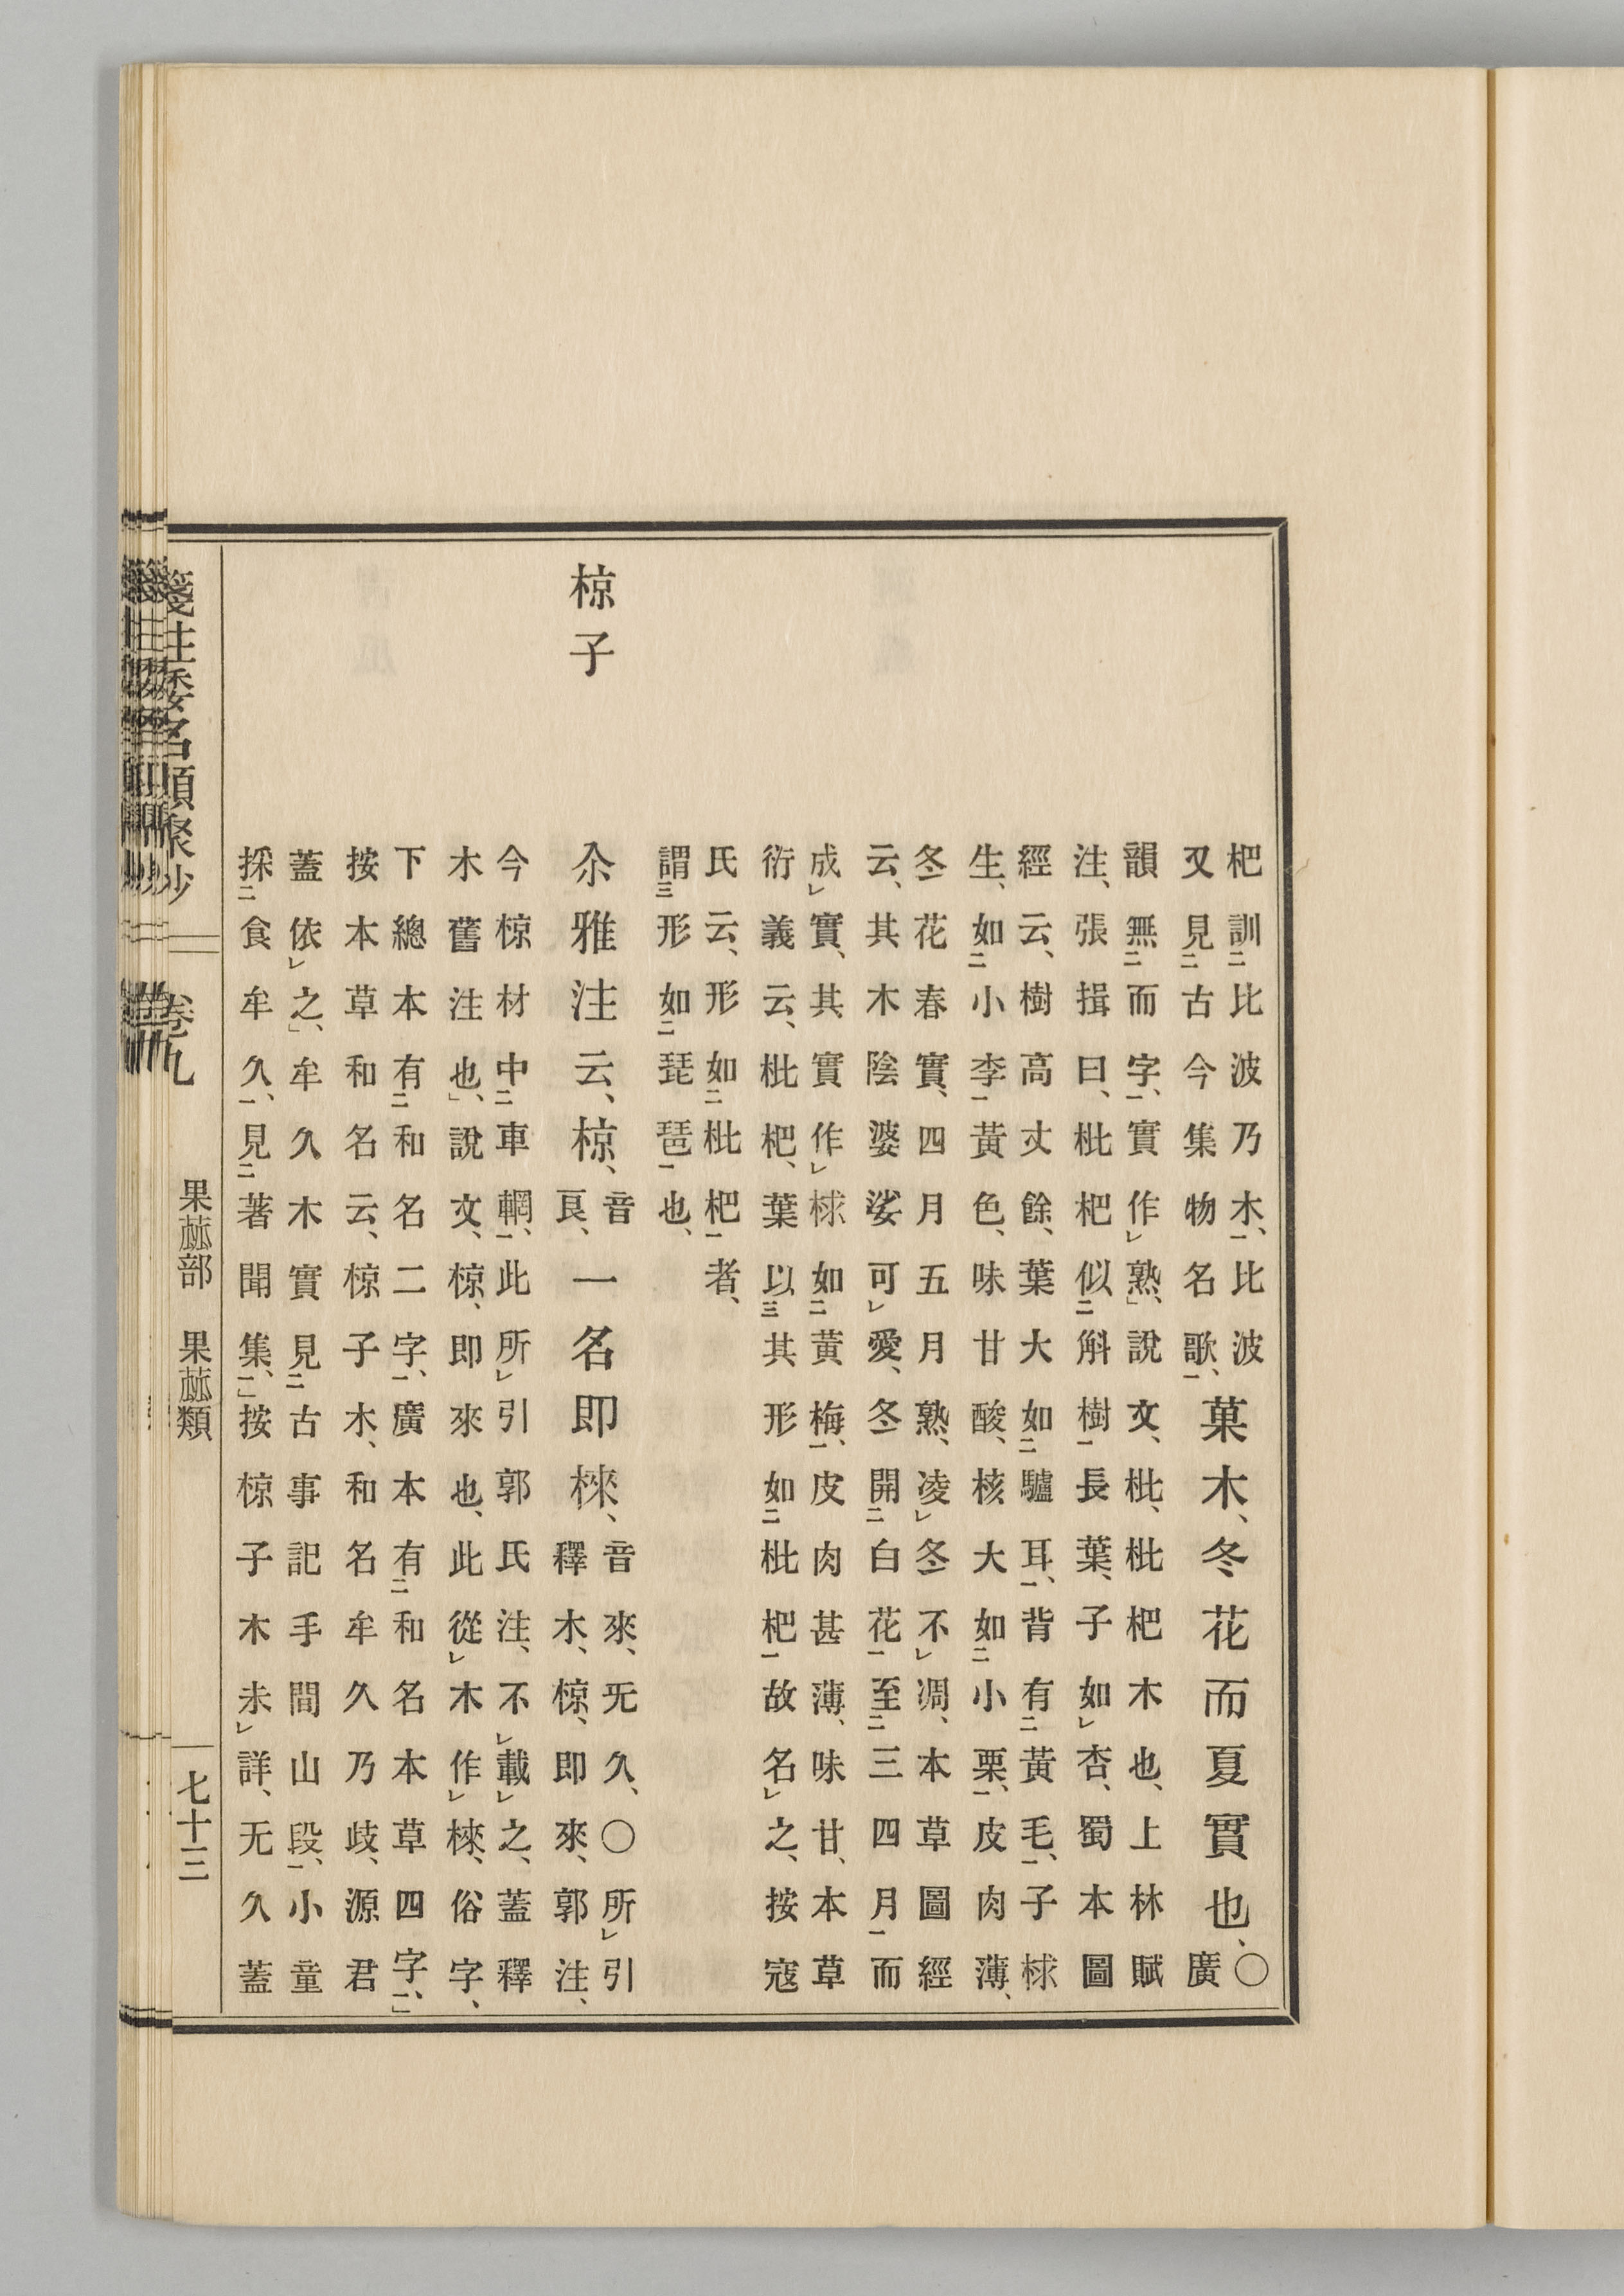 杷訓㆓比波乃木、㆒比波
又見㆓古今集物名歌、㆒
菓木、冬花而夏實也、
〇
廣
韻無㆓而字、㆒實作㆑熟、」說文、枇、枇杷木也、上林賦
注、張揖曰、枇杷似㆓斛樹㆒長葉、子如㆑杏、蜀本圖
經云、樹高丈餘、葉大如㆓驢耳、㆒背有㆓黃毛、㆒子梂
生、如㆓小李㆒黃色、味甘酸、核大如㆓小栗、㆒皮肉薄、
冬花春實、四月五月熟、凌㆑冬不㆑凋、本草圖經
云、其木陰婆娑可㆑愛、冬開㆓白花㆒至㆓三四月㆒而
成㆑實、其實作㆑梂如㆓黃梅、㆒皮肉甚薄、味甘、本草
衍義云、枇杷、葉以㆔其形如㆓枇杷㆒故名㆑之、按寇
氏云、形如㆓枇杷㆒者、
謂㆔形如㆓琵琶㆒也、
椋子
尒雅注云、椋、
音
良、
一名即梾、
音來、无久、〇所㆑引
釋木、椋、即來、郭注、
今椋材中㆓車輞、㆒此所㆑引郭氏注、不㆑載㆑之、蓋釋
木舊注也、」說文、椋、即來也、此從㆑木作㆑梾、俗字、
下總本有㆓和名二字、㆒廣本有㆓和名本草四字、㆒」
按本草和名云、椋子木、和名牟久乃歧、源君
蓋依㆑之、」牟久木實見㆓古事記手間山段、㆒小童
採㆓食牟久㆒、見㆓著聞集、㆒」按椋子木未㆑詳、无久蓋
箋注倭名類聚抄
卷九
果蓏部 果蓏類
七十三